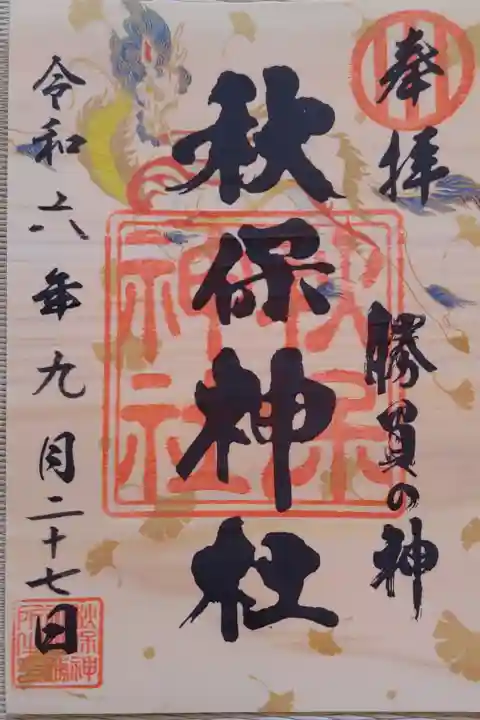 奉拝
勝負の神
秋保神社
秋保神社
令和六年九月二十七日